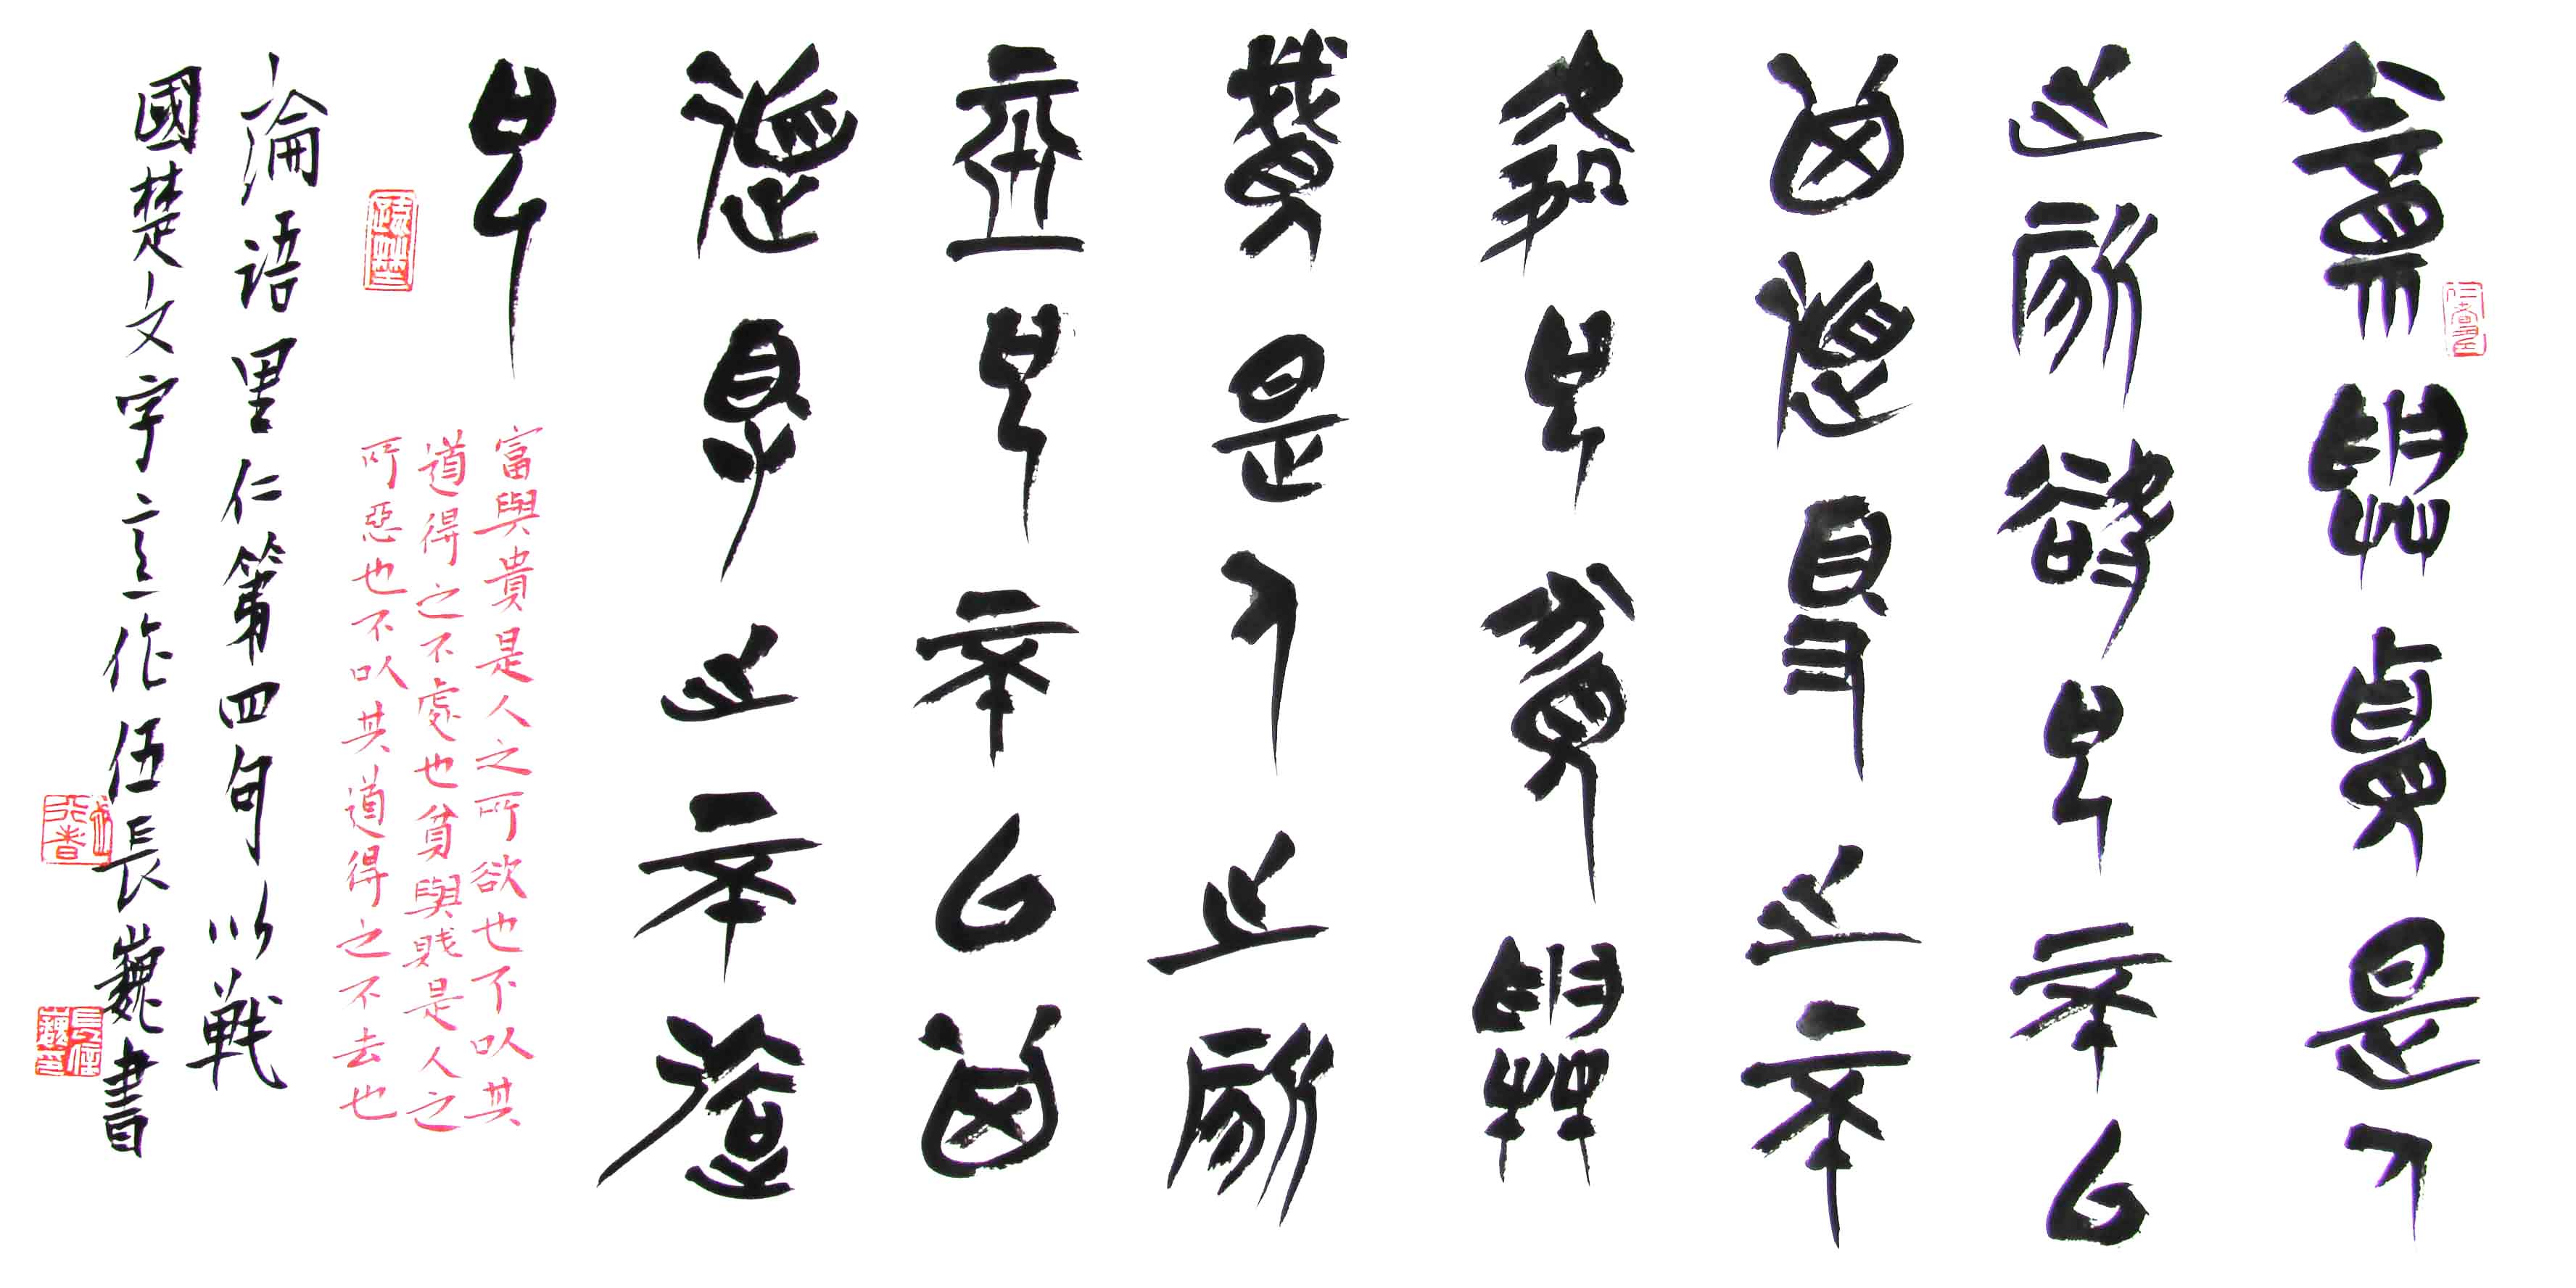 富與貴是人
之所欲也不以
其道得之不
處也貧與
賤是人之所
惡也不以其
道得之不去
也
富與貴是人之所欲也不以其
道得之不處也貧與賤是人之
所惡也不以其道得之不去也
論语里仁第四句以戰
國楚文字意作伍長巍書